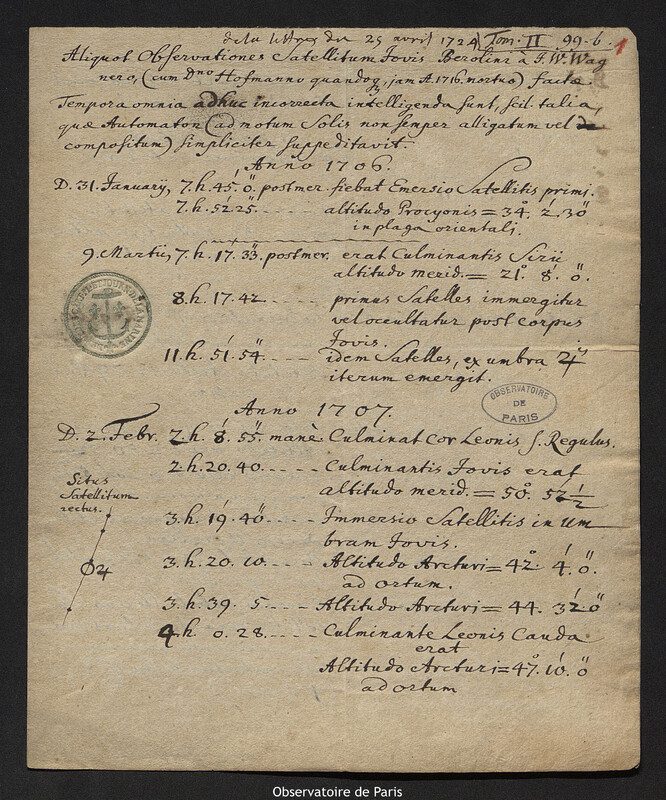 de la lettre du 25 avril 1724 Tom. II 99. 6. 1
Aliquot Observationes Satellitum Jovis Berolini à J. W. Wag
nero, (cum Dno Hofmanno quandoq; jam A. 1716. mortuo) factæ.
Tempora omnia adhuc incorrecta intelligenda sunt, scil. talia,
quæ Automaton (ad motum Solis non semper alligatum vel
compositum) simpliciter suppeditavit.
Anno 1706.
D. 31. Januarij, 7. h. 45. 0. postmer. fiebat Emersio Satellitis primi.
7. h. 52. 25. - - - - altitudo Procyonis = 34. 2. 30
in plaga orientali.
9. Martii, 7. h. 17. 33. postmer. erat Culminantis Sirii
altitudo merid. = 21. 8. 0.
8. h. 17. 42 - - - - primus Satelles immergitur
vel occultatur post corpus
Jovis.
11. h. 51. 54. - - - - idem Satelles, ex umbra ♃is
iterum emergit.
OBSERVATOIRE
DE
PARIS
Anno 1707.
D. 2. Febr. 2. h. 8. 55. manè Culminat Cor Leonis s. Regulus.
2. h. 20. 40. - - - - Culminantis Jovis erat
altitudo merid. = 50. 52 1/2
Situs
Satellitum
rectus.
3. h. 19. 40 - - - - Immersio Satellitis in um
bram Jovis.
♃
3. h. 20. 10. - - - - Altitudo Arcturi = 42. 4. 0.
ad ortum.
3. h. 39. 5. - - - - Altitudo Arcturi = 44. 32. 0
4. h. 0. 28. - - - - Culminante Leonis Cauda
erat
Altitudo Arcturi = 47. 10. 0
ad ortum
Observatoire de Paris